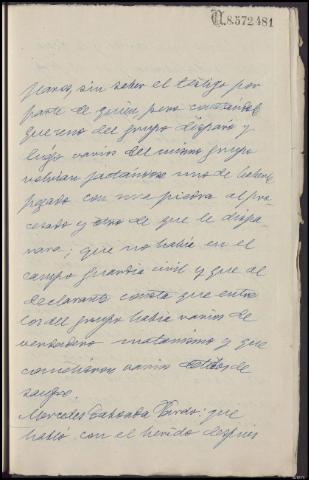 N.8.572.481
sin saber el testigo por
parte de quien, pero constándole
que uno del grupo disparó y
luego varios del mismo grupo
volvian jactandose uno de haber
pegado con una piedra al pro-
cesado y otro de que le dispa-
rara; que no habia en el
campo guardia civil y que al
declarante consta que entre
los del grupo habia varios de
verdadero matonismo y que
cometieron varios delitos de
sangre.
Mercedes Taboada Pardo: que
habló con el herido despues